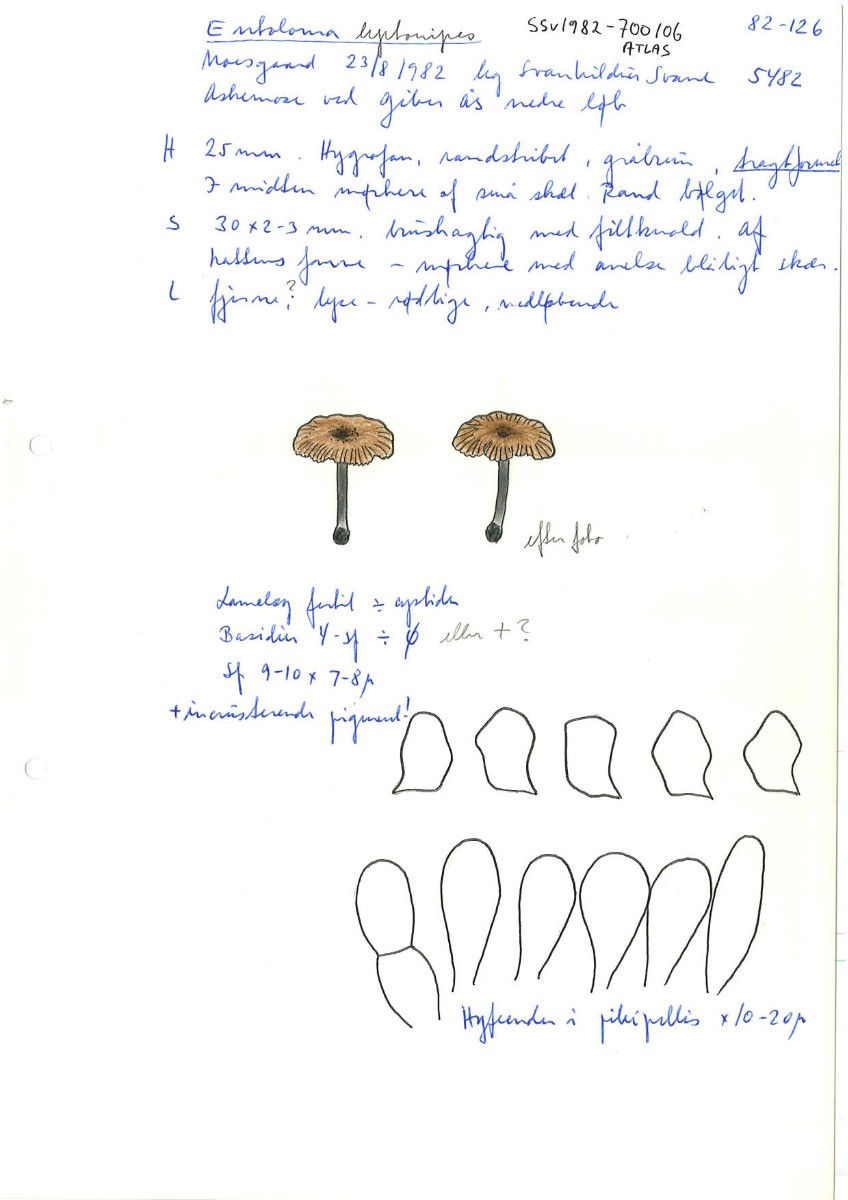 Entoloma leptonipes SSV1982-700106 82-126
ATLAS
Moesgaard 23/8 1982 leg Svanhildur Svane 5482
Askemose ved Giber ås nedre løb
H 25 mm. Hygrofan, randstribet, gråbrun, tragtformet
I midten mørkere af små skæl. Rand bølget.
S 30 x 2-3 mm. bruskagtig med filtknold. Af
hattens farve - mørkere med anelse blåligt skær.
L fjerne? lyse - rødlige, nedløbende
efter foto
Lamelæg fertil ÷ cystider
Basidier 4-sp ÷ ϕ eller + ?
Sp 9-10 x 7-8µ
+ incrusterende pigment!
Hyfeender i pileipellis x 10-20µ